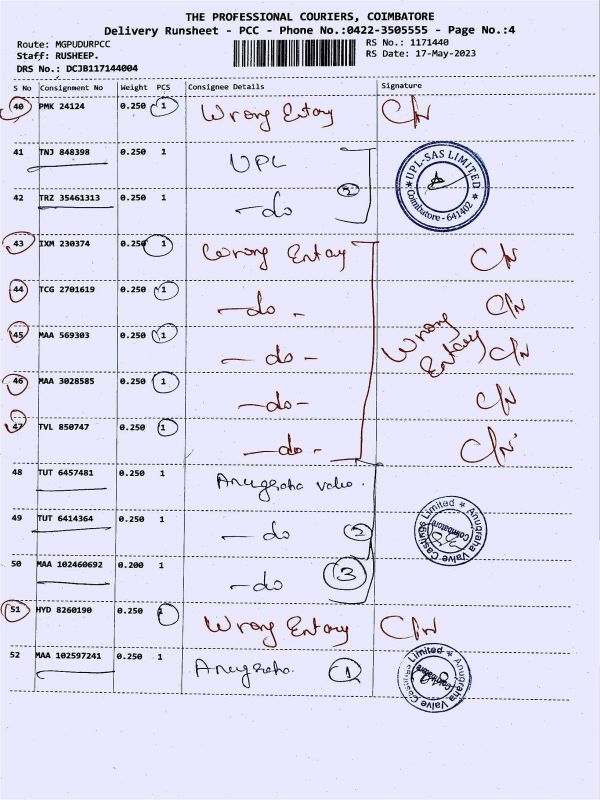 THE PROFESSIONAL COURIERS, COIMBATORE
Delivery Runsheet - PCC - Phone No.:0422-3505555 - Page No.:4
Route: MGPUDURPCC
RS No.: 1171440
Staff: RUSHEEP.
RS Date: 17-May-2023
DRS No.: DCJB117144004
S No Consignment No Weight PCS Consignee Details Signature
40 PMK 24124 0.250 1 Wrong Entry C/N
41 TNJ 848398 0.250 1 UPL
UPL-SAS LIMITED
Coimbatore - 641402
42 TRZ 35461313 0.250 1 -do 2
43 IXM 230374 0.250 1 Wrong Entry C/N
44 TCG 2701619 0.250 1 -do- C/N
45 MAA 569303 0.250 1 -do- Wrong Entry C/N
46 MAA 3028585 0.250 1 -do- C/N
47 TVL 850747 0.250 1 -do- C/N
48 TUT 6457481 0.250 1 Anugraha valve.
49 TUT 6414364 0.250 1 -do 2
Anugraha Valve Castings Limited
Coimbatore
50 MAA 102460692 0.200 1 -do 3
51 HYD 8260190 0.250 1 Wrong Entry C/N
52 MAA 102597241 0.250 1 Anugraha. 1
Anugraha Valve Castings Limited
Coimbatore